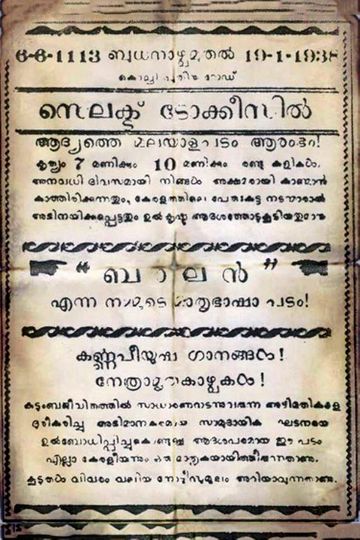 6-6-1113 ബുധനാഴ്ചമുതൽ 19-1-1938
കൊച്ചി പുതിയ റോഡ്
സെലക്ട് ടോക്കീസിൽ
ആദ്യത്തെ മലയാളപടം ആരംഭം!
കൃത്യം 7 മണിക്കും 10 മണിക്കും രണ്ടു കളികൾ.
അനവധി ദിവസമായി നിങ്ങൾ അക്ഷമരായി കാണ്മാൻ
കാത്തിരിക്കുന്നതും, കേരളത്തിലെ പേരുകേട്ട നടന്മാരാൽ
അഭിനയിക്കപ്പെട്ടതും ഉൽകൃഷ്ട ആദർശത്തോടുകൂടിയതുമായ
“ബാലൻ”
എന്ന നമ്മുടെ മാതൃഭാഷാ പടം!
കർണ്ണപീയൂഷ ഗാനങ്ങൾ!
നേത്രാമൃതകാഴ്ചകൾ!
കുടുംബജീവിതത്തിൽ സാധാരണവന്നുചേരുന്ന അഴിമതികളെ
ദൂരീകരിച്ചു അഭിമാനകരമായ സാമുദായിക ഘടനയെ
ഉൽബോധിപ്പിച്ചുകൊണ്ടുള്ള ആദർശപരമായ ഈ പടം
എല്ലാ കേരളീയന്നും ഒരു മാതൃകയായിത്തീരുന്നതാണു.
കൂടുതൽ വിവരം വലിയ നോട്ടീസുമൂലം അറിയാവുന്നതാണു.